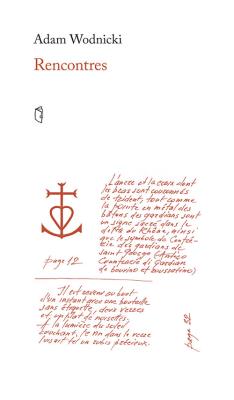 Adam Wodnicki
Rencontres
L'ancre et la croix dont
les bras sont couronnés
de trident, tout comme
la pointe en métal des
bâtons des gardians sont
un signe sacré dans le
delta du Rhône, ainsi
que le symbole de Confré-
rie des gardians de
Saint George (Antico
Counfrarié di Gardian
de bouvino et roussatino)
page 12
Il est revenu au bout
d'un instant avec une bouteille
sans étiquette, deux verres
et un plat de noisettes.
A la lumière du soleil
couchant, le vin dans le verre
luisait tel un rubis précieux.
page 22